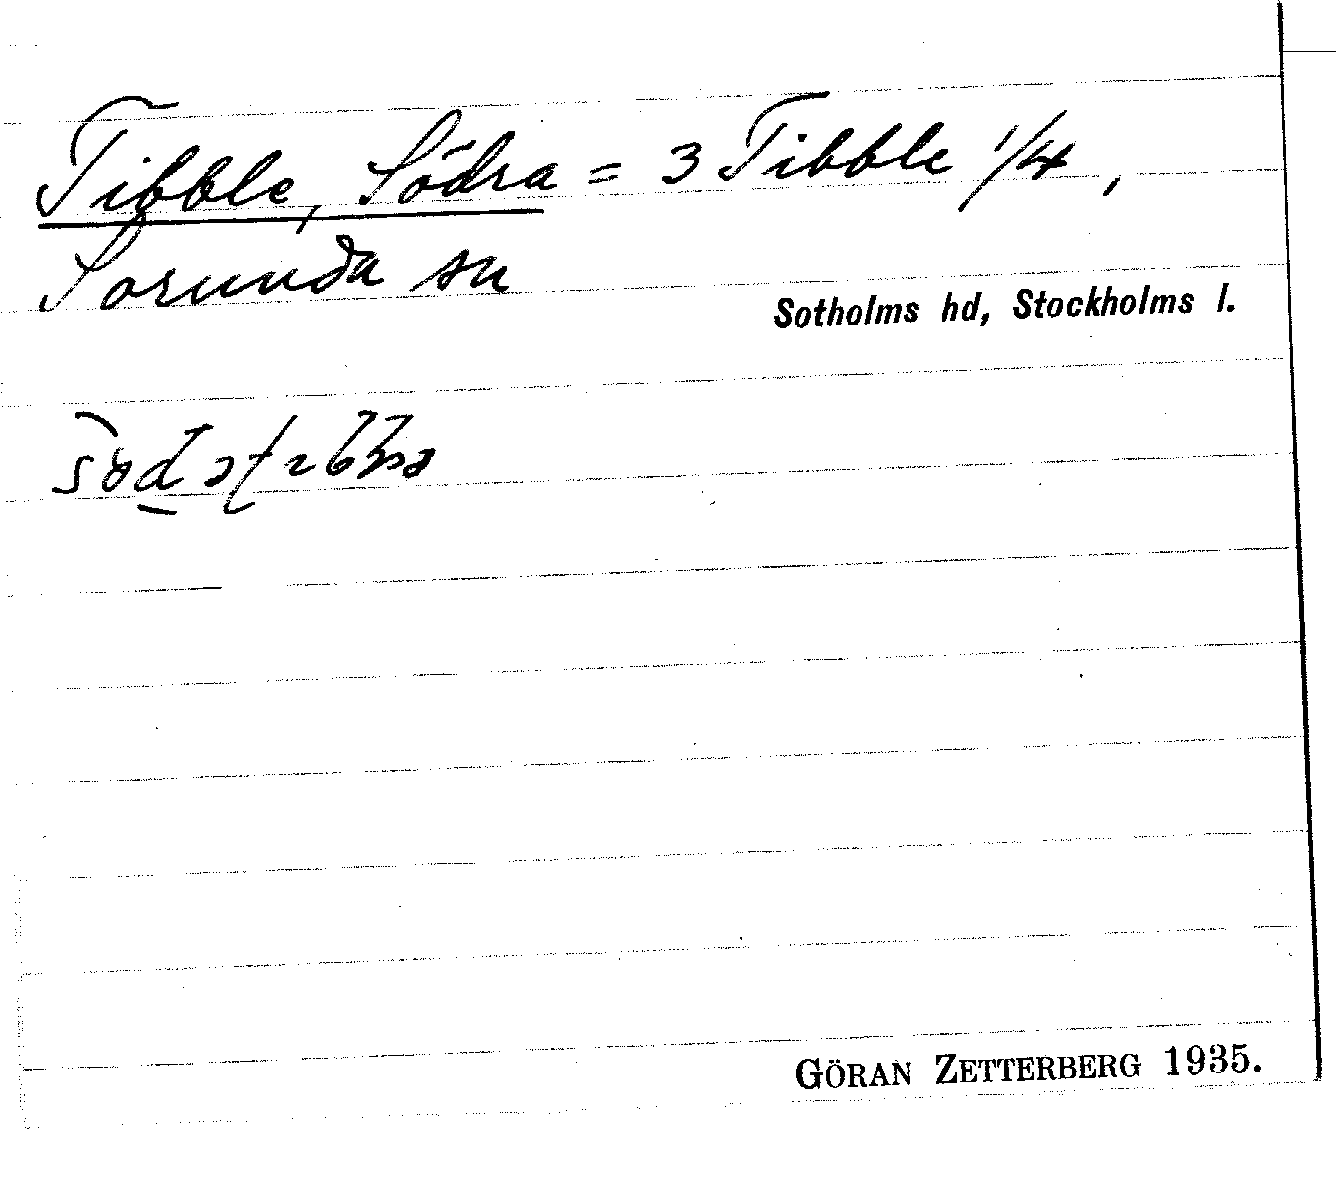 Tibble, Södra = 3 Tibble 1/4,
Sorunda sn
Sotholms hd, Stockholms l.
GÖRAN ZETTERBERG 1935.